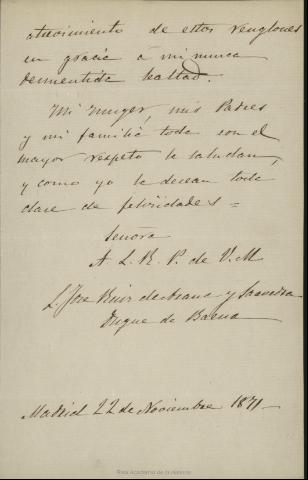 atrevimiento de estos renglones
en gracia á mi nunca
desmentida lealtad.
Mi muger, mis Padres
y mi familia toda con el
mayor respeto le saludan,
y como yo le desean toda
clase de felicidades =
Señora
A. L. R. P. de V. M
José Ruiz de Arana y Saavedra
Duque de Baena
Madrid 22 de Noviembre 1871
Real Academia de la Historia